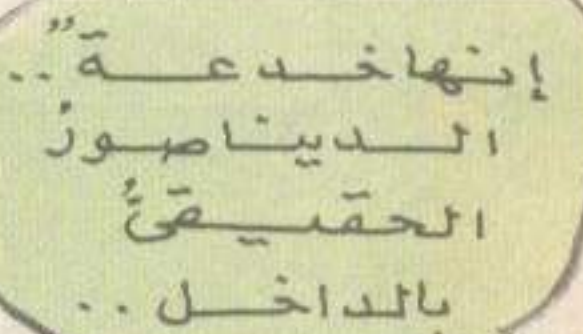 إنها خدعةٌ..
الديناصورُ
الحقيقىُّ
بالداخل..